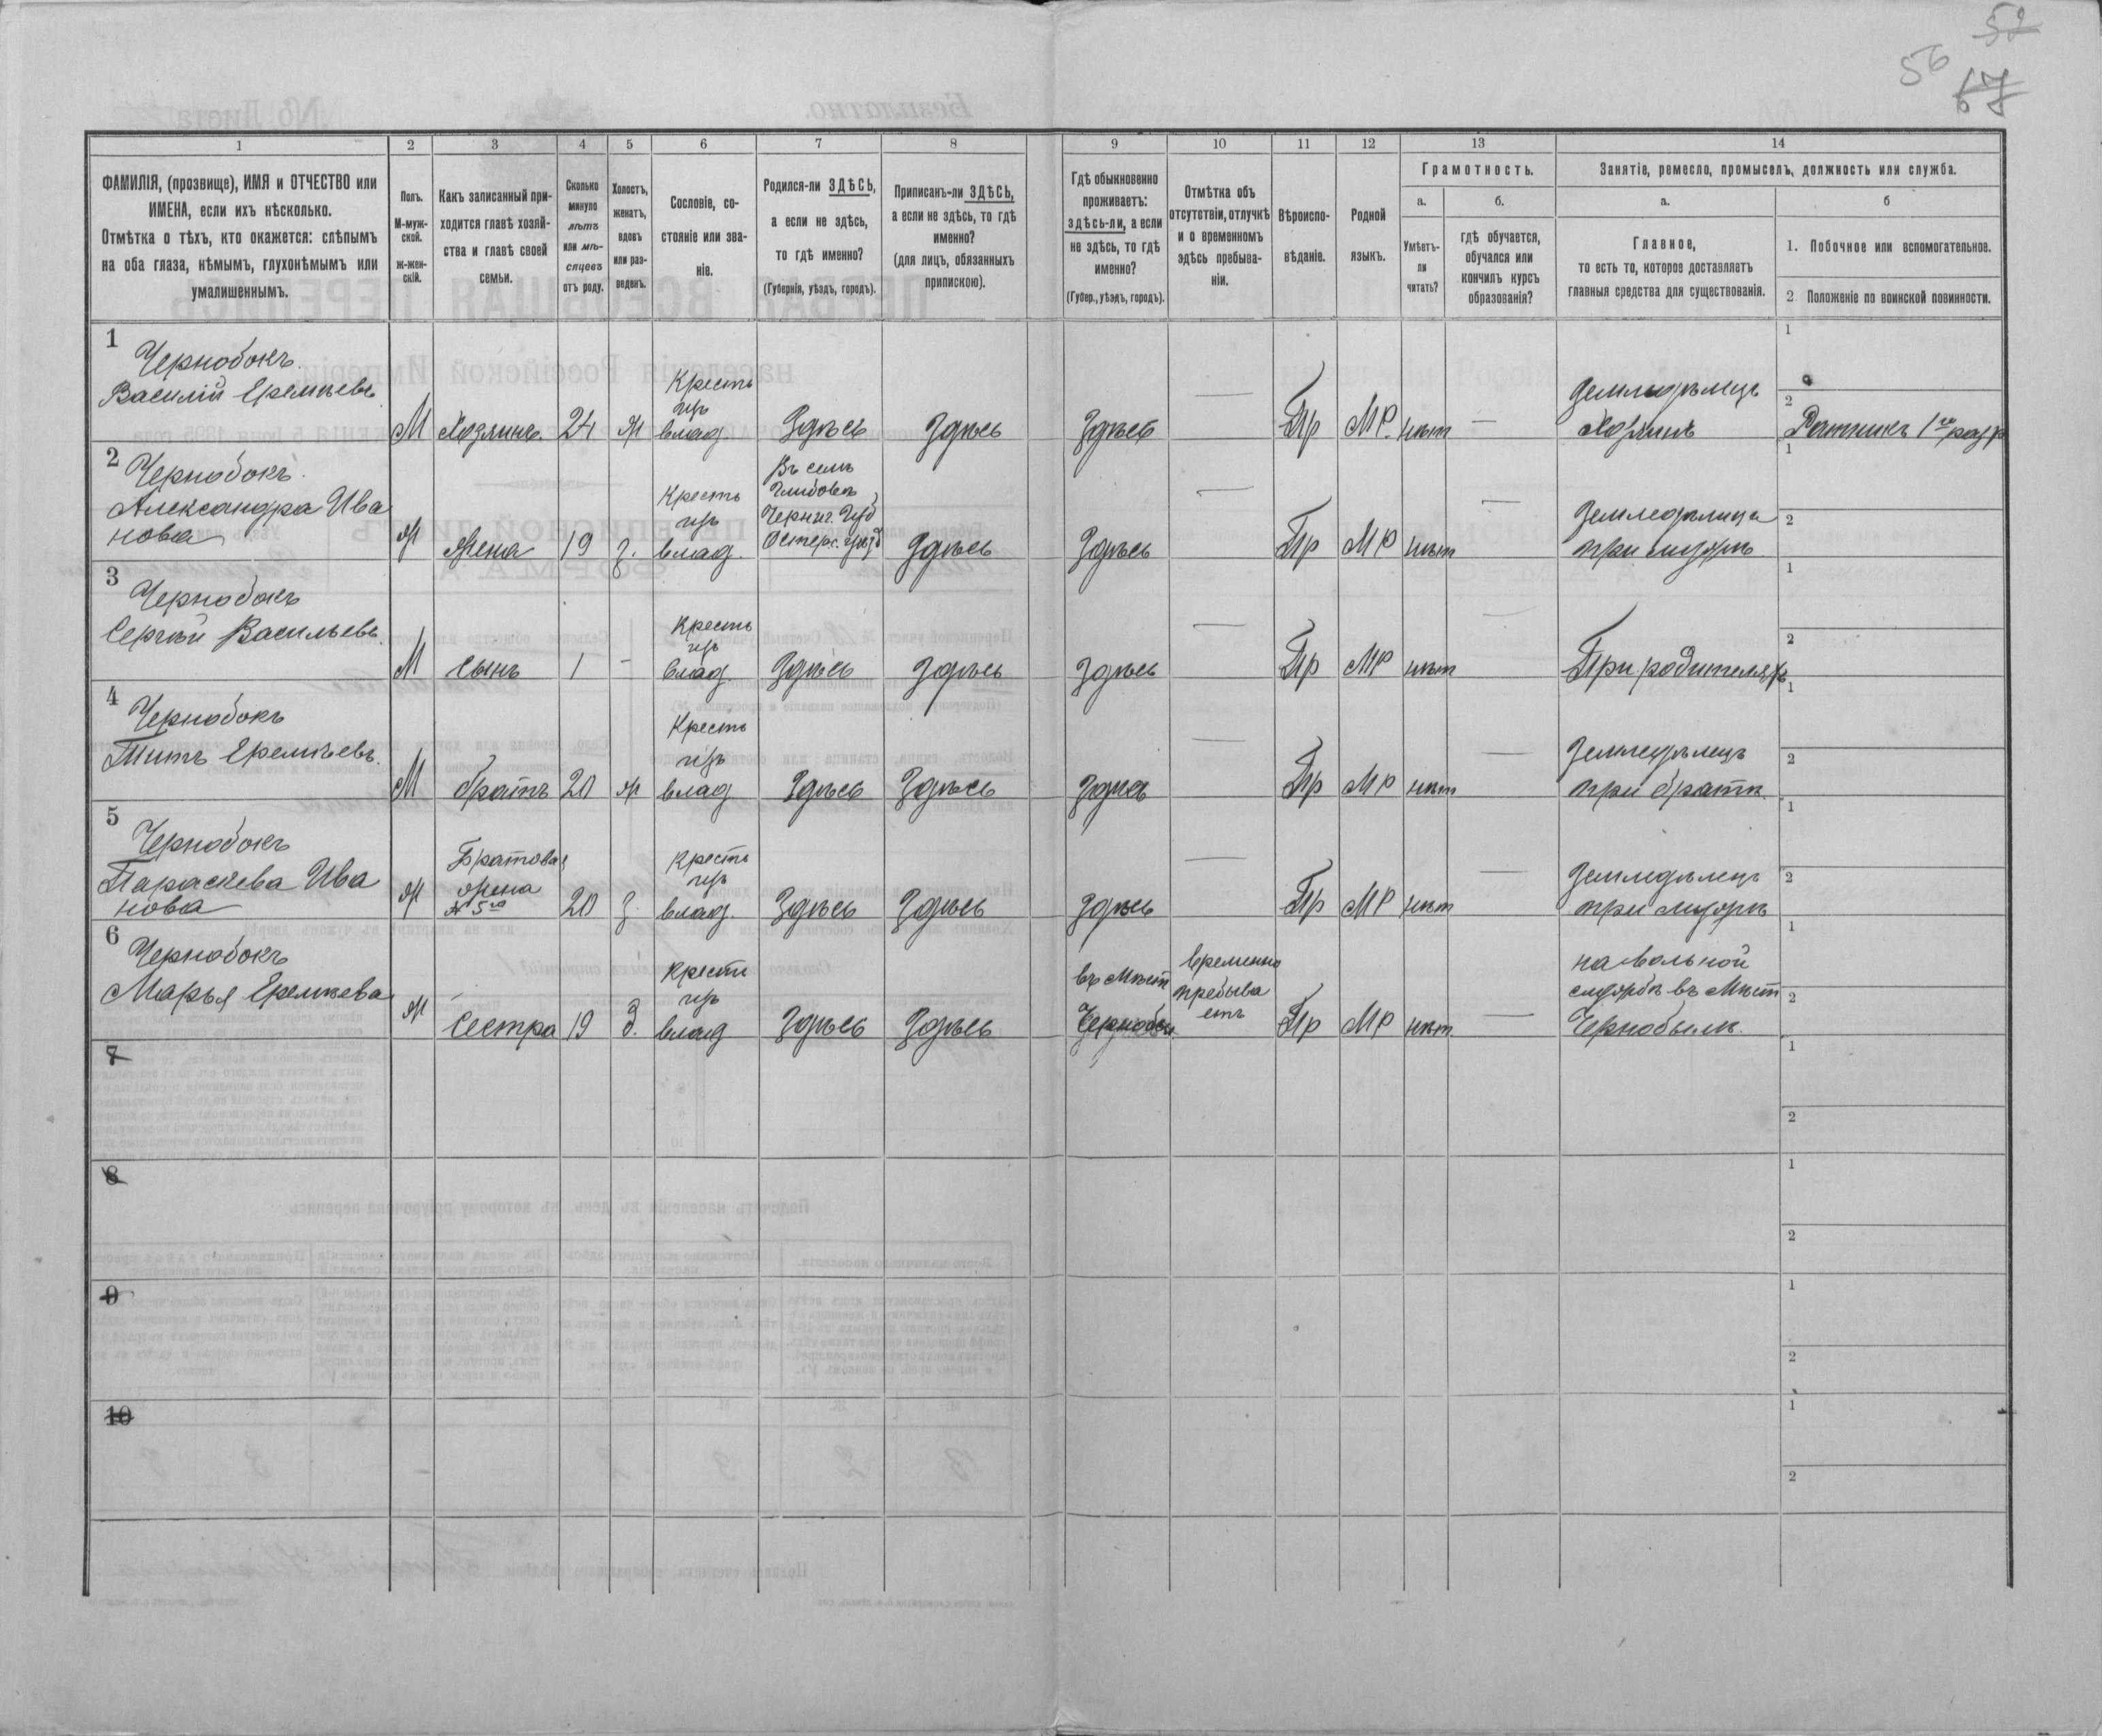 52
56
67
1 2 3 4 5 6 7 8 9 10 11 12 13 14
ФАМИЛІЯ, (прозвище), ИМЯ и ОТЧЕСТВО или
ИМЕНА, если ихъ нѣсколько.
Отмѣтка о тѣхъ, кто окажется: слѣпымъ
на оба глаза, нѣмымъ, глухонѣмымъ или
умалишеннымъ.
Полъ.
М-муж-
ской.
ж-жен-
скій.
Какъ записанный при-
ходится главѣ хозяй-
ства и главѣ своей
семьи.
Сколько
минуло
лѣтъ
или мѣ-
сяцевъ
отъ роду.
Холостъ,
женатъ,
вдовъ
или раз-
веденъ.
Сословіе, со-
стояніе или зва-
ніе.
Родился-ли ЗДѢСЬ,
а если не здѣсь,
то гдѣ именно?
(Губернія, уѣздъ, городъ).
Приписанъ-ли ЗДѢСЬ,
а если не здѣсь, то гдѣ
именно?
(для лицъ, обязанныхъ
припискою).
Гдѣ обыкновенно
проживаетъ:
здѣсь-ли, а если
не здѣсь, то гдѣ
именно?
(Губер., уѣздъ, городъ).
Отмѣтка объ
отсутствіи, отлучкѣ
и о временномъ
здѣсь пребыва-
ніи.
Вѣроиспо-
вѣданіе.
Родной
языкъ.
Грамотность.
а.
Умѣетъ-
ли
читать?
б.
гдѣ обучается,
обучался или
кончилъ курсъ
образованія?
Занятіе, ремесло, промыселъ, должность или служба.
а.
Главное,
то есть то, которое доставляетъ
главныя средства для существованія.
б
1. Побочное или вспомогательное.
2 Положеніе по воинской повинности.
1
Чернобокъ
Василій Еремѣевъ
М Хозяинъ. 24 ж
Кресть
изъ
влад.
Здѣсь Здѣсь Здѣсь — Пр МР. нѣт —
Земледѣлецъ
Хозяинъ
1
2
Ратникъ 1го разр
2
Чернобокъ
Александра Ива
нова
ж Жена 19 з.
Кресть
изъ
влад.
Въ селѣ
Черниг. Губ
Остерс. уѣзд
Здѣсь Здѣсь — Пр МР нѣт —
Земледѣлица
при мужѣ
1
2
3
Чернобокъ
Сергѣй Васильевъ
М Сынъ 1 -
Кресть
изъ
влад.
Здѣсь Здѣсь Здѣсь — Пр МР нѣт —
При родителяхъ
1
2
4
Чернобокъ
Титъ Еремѣевъ.
М братъ 20 ж
Кресть
изъ
влад
Здѣсь Здѣсь Здѣсь — Пр МР нѣт —
Земледѣлецъ
при братѣ
1
2
5
Чернобокъ
Параскева Ива
нова
ж
Братова
жена
№ 5го
20 з
Кресть
изъ
влад.
Здѣсь Здѣсь Здѣсь — Пр МР нѣт —
Земледѣлец
при мужѣ
1
2
6
Чернобокъ
Марья Еремѣева
ж Сестра 19 з.
Кресть
изъ
влад
Здѣсь Здѣсь
въ Мѣст
Чернобы.
временно
пребыва
етъ
Пр МР нѣт —
на вольной
службѣ въ Мѣст
Чернобылѣ.
1
2
7
1
2
8
1
2
9
1
2
10
1
2